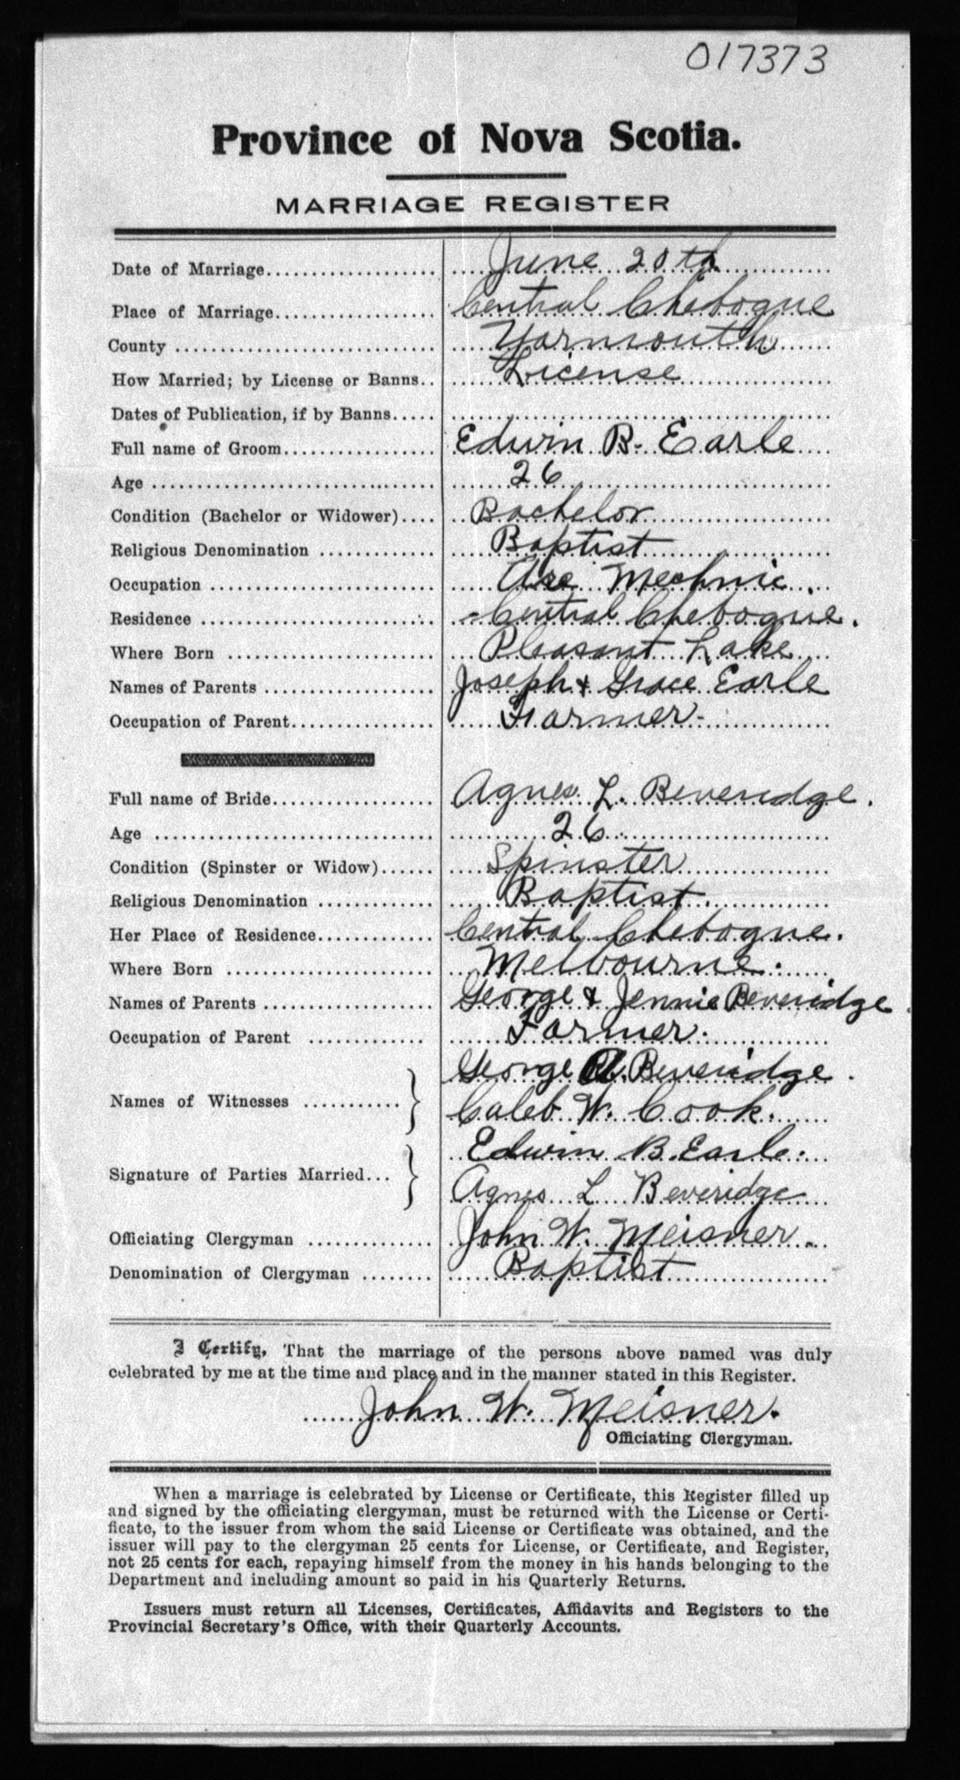 017373
Province of Nova Scotia.
MARRIAGE REGISTER
Date of Marriage.................... June 20th
Place of Marriage.................. Central Chebogue
County .............................. Yarmouth
How Married; by License or Banns.. License
Dates of Publication, if by Banns.....
Full name of Groom................. Edwin B. Earle
Age ................................ 26
Condition (Bachelor or Widower).... Bachelor
Religious Denomination ............. Baptist
Occupation ......................... Mechnic
Residence .......................... Central Chebogue.
Where Born ........................ Pleasant Lake
Names of Parents ................... Joseph & Grace Earle
Occupation of Parent................ Farmer-
Full name of Bride.................. Agnes L. Beveridge.
Age ................................ 26
Condition (Spinster or Widow)...... Spinster
Religious Denomination ............. Baptist.
Her Place of Residence............. Central Chebogue.
Where Born ........................ Melbourne.
Names of Parents ................... George & Jennie Beveridge
Occupation of Parent ............. Farmer.
George Beveridge.
Names of Witnesses ...........} Caleb W. Cook.
Edwin B. Earle.
Signature of Parties Married...} Agnes L Beveridge
Officiating Clergyman .............. John W. Meisner.
Denomination of Clergyman ........ Baptist
I Certify, That the marriage of the persons above named was duly
celebrated by me at the time and place and in the manner stated in this Register.
......John W. Meisner.
Officiating Clergyman.
When a marriage is celebrated by License or Certificate, this Register filled up
and signed by the officiating clergyman, must be returned with the License or Certi-
ficate, to the issuer from whom the said License or Certificate was obtained, and the
issuer will pay to the clergyman 25 cents for License, or Certificate, and Register,
not 25 cents for each, repaying himself from the money in his hands belonging to the
Department and including amount so paid in his Quarterly Returns.
Issuers must return all Licenses, Certificates, Affidavits and Registers to the
Provincial Secretary's Office, with their Quarterly Accounts.